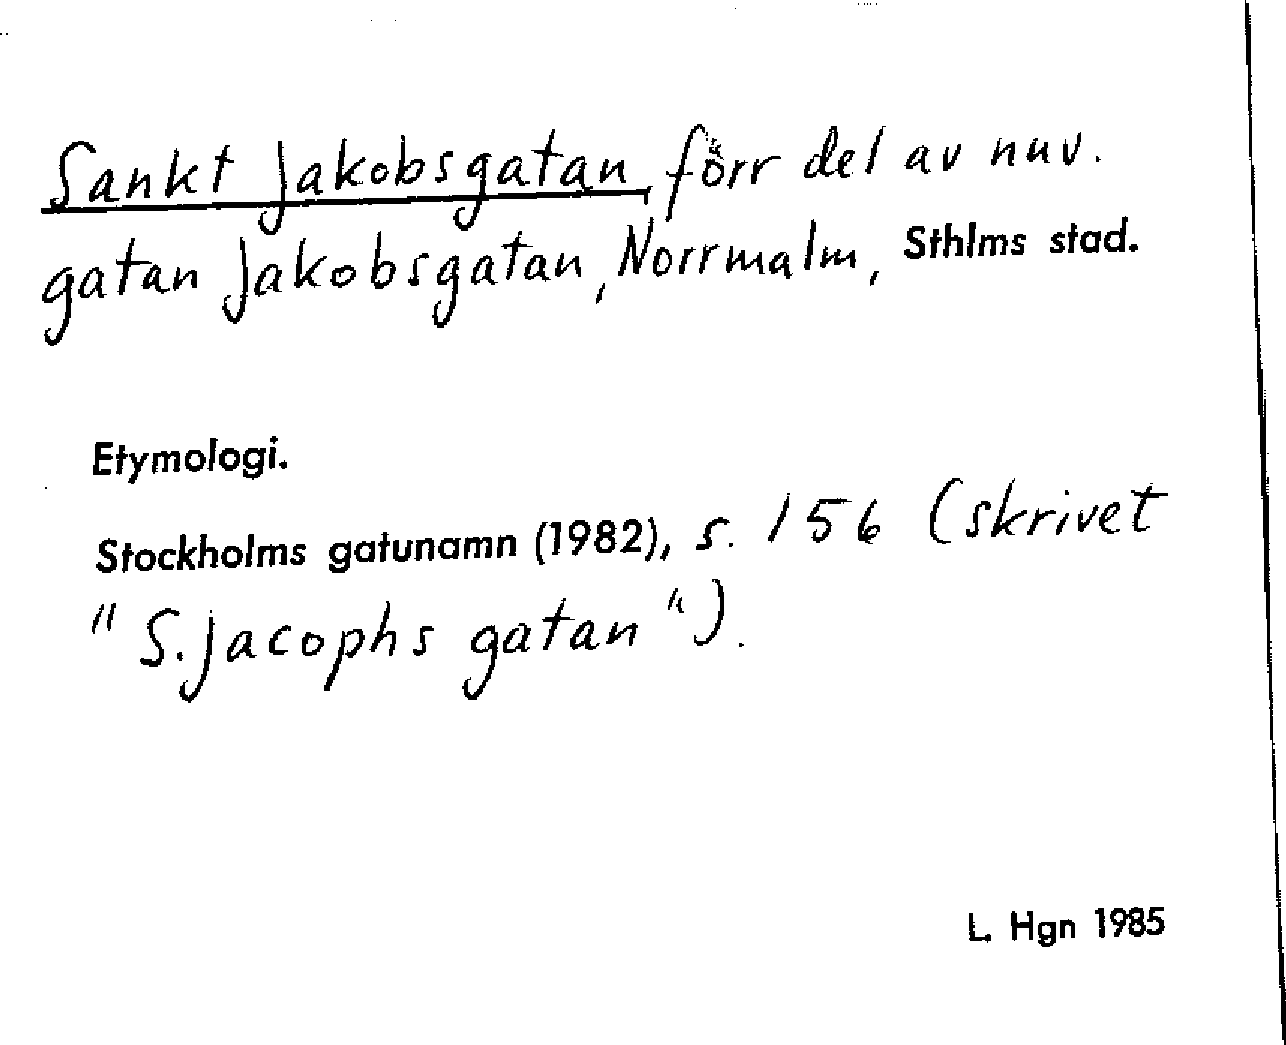 Sankt Jakobsgatan, förr del av nuv.
gatan Jakobsgatan, Norrmalm, Sthlms stad.
Etymologi.
Stockholms gatunamn (1982), s. 156 (skrivet
"S. Jacophs gatan").
L. Hgn 1985